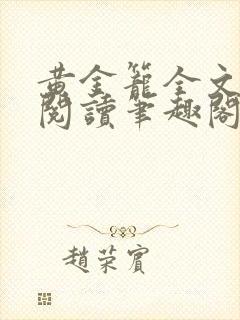 黃金籠全文
閱讀筆趣閣
趙荣賔